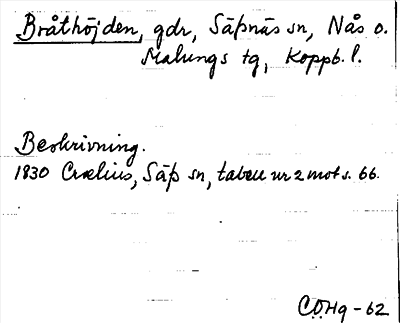 Bråthöjden, gdr, Säfsnäs sn, Nås o.
Malungs tg, Koppb. l.
Beskrivning.
1830 Crælius, Säfs sn, tabell nr 2 mot s. 66.
C.O.Hq - 62